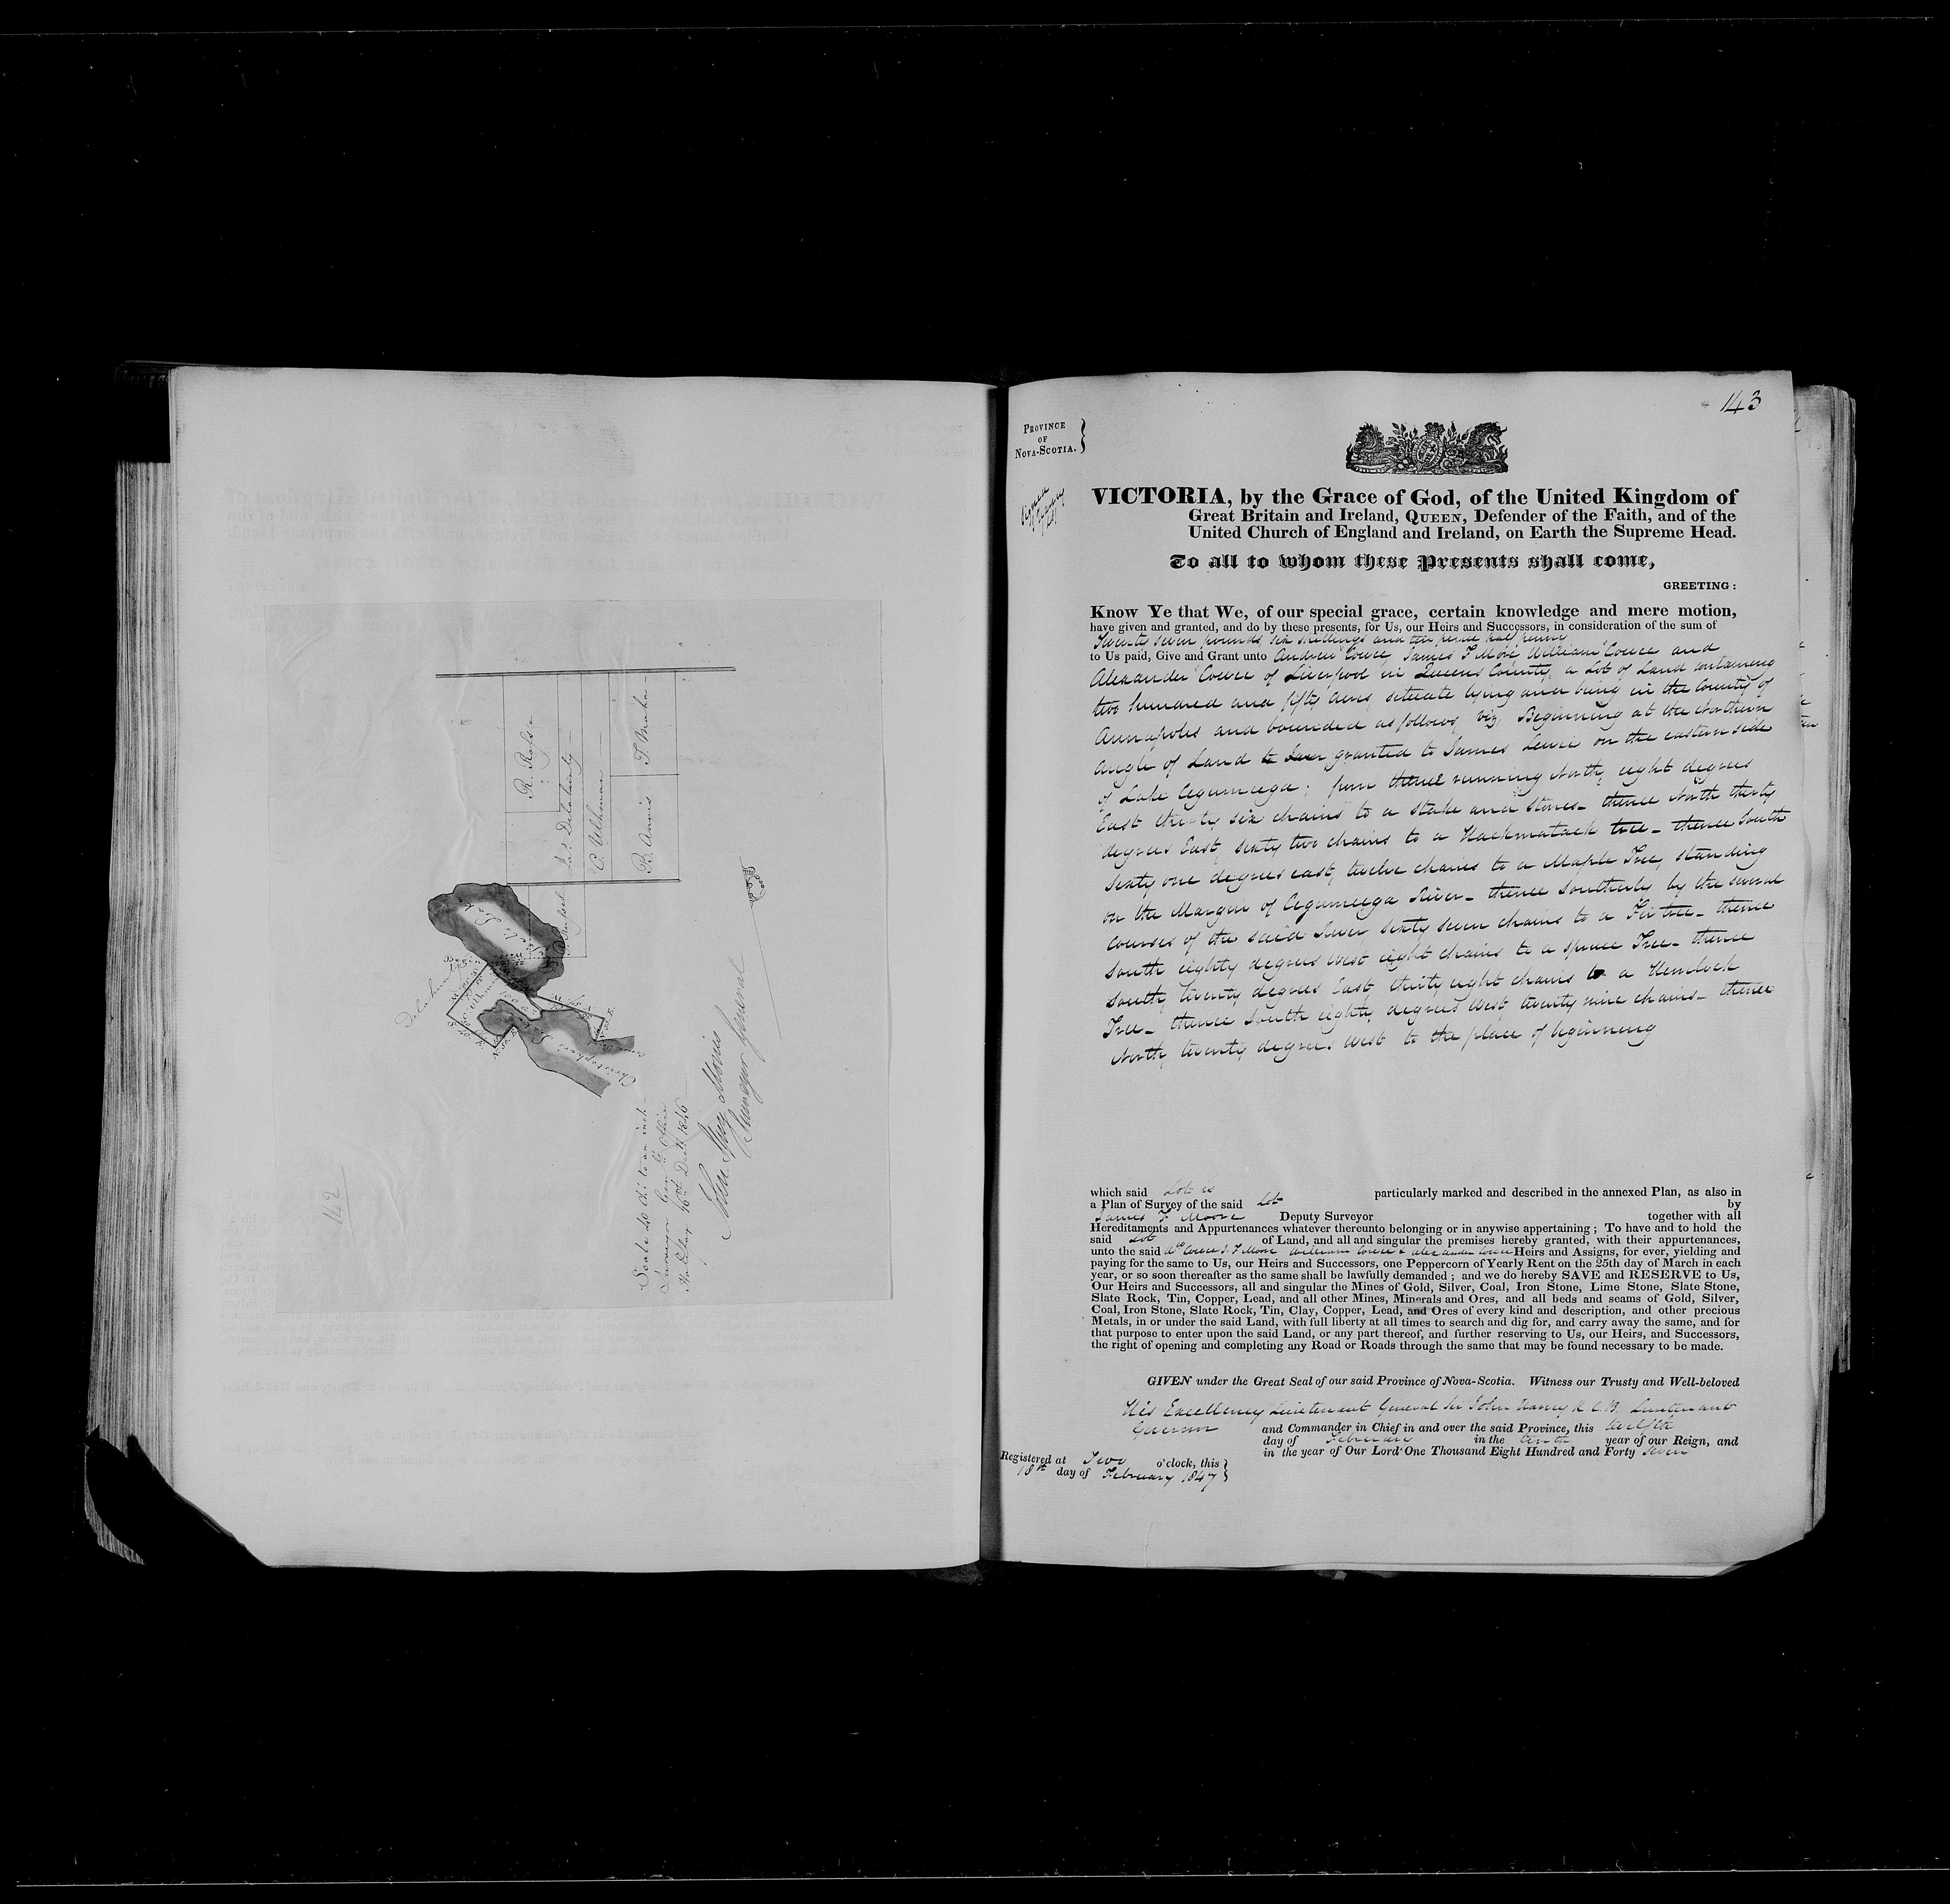 R. Ross
Jas. Delahunty
C. Uhlman
B. Annis
T. Meaher
Lake
Christophers
Scale 40 Chs. to an inch
Surveyor Genl. Office
Halifax 16th Decr. 1846
John Spry Morris
Surveyor General
142
143
PROVINCE
OF
NOVA-SCOTIA.
VICTORIA, by the Grace of God, of the United Kingdom of
Great Britain and Ireland, QUEEN, Defender of the Faith, and of the
United Church of England and Ireland, on Earth the Supreme Head.
To all to whom these Presents shall come,
GREETING:
Know Ye that We, of our special grace, certain knowledge and mere motion,
have given and granted, and do by these presents, for Us, our Heirs and Successors, in consideration of the sum of
Twenty seven pounds six shillings and ten pence half penny
to Us paid, Give and Grant unto Andrew Cowie, James F More, William Cowie and
Alexander Cowie of Liverpool in Queens County, a Lot of Land containing
two hundred and fifty acres, situate lying and being in the County of
Annapolis and bounded as follows, viz, Beginning at the Northern
angle of Land granted to James Lewis on the eastern side
of Lake Cegumcega; from thence running North, eight degrees
East thirty six chains to a stake and stones - thence North thirty
degrees East, sixty two chains to a Hackmatack tree - thence South
sixty one degrees east, twelve chains to a Maple Tree, standing
on the Margin of Cegumcega River - thence Southerly by the several
courses of the said River sixty seven chains to a Fir tree - thence
South eighty degrees West eight chains to a spruce Tree - thence
South, twenty degrees East thirty eight chains to a Hemlock
Tree - thence South eighty degrees West, twenty nine chains - thence
North, twenty degrees West to the place of beginning
which said Lot is particularly marked and described in the annexed Plan, as also in
a Plan of Survey of the said Lot by
James F Moore Deputy Surveyor together with all
Hereditaments and Appurtenances whatever thereunto belonging or in anywise appertaining; To have and to hold the
said Lot of Land, and all and singular the premises hereby granted, with their appurtenances,
unto the said Aw Cowie J. F Moore William Cowie & Alexander Cowie Heirs and Assigns, for ever, yielding and
paying for the same to Us, our Heirs and Successors, one Peppercorn of Yearly Rent on the 25th day of March in each
year, or so soon thereafter as the same shall be lawfully demanded; and we do hereby SAVE and RESERVE to Us,
Our Heirs and Successors, all and singular the Mines of Gold, Silver, Coal, Iron Stone, Lime Stone, Slate Stone,
Slate Rock, Tin, Copper, Lead, and all other Mines, Minerals and Ores, and all beds and seams of Gold, Silver,
Coal, Iron Stone, Slate Rock, Tin, Clay, Copper, Lead, and Ores of every kind and description, and other precious
Metals, in or under the said Land, with full liberty at all times to search and dig for, and carry away the same, and for
that purpose to enter upon the said Land, or any part thereof, and further reserving to Us, our Heirs, and Successors,
the right of opening and completing any Road or Roads through the same that may be found necessary to be made.
GIVEN under the Great Seal of our said Province of Nova-Scotia. Witness our Trusty and Well-beloved
His Excellency Lieutenant General Sir John Harvey K.C.B. Lieutenant
Governor and Commander in Chief in and over the said Province, this twelfth
day of February in the tenth year of our Reign, and
in the year of Our Lord One Thousand Eight Hundred and Forty Seven
Registered at Two o'clock, this
18th day of February 1847